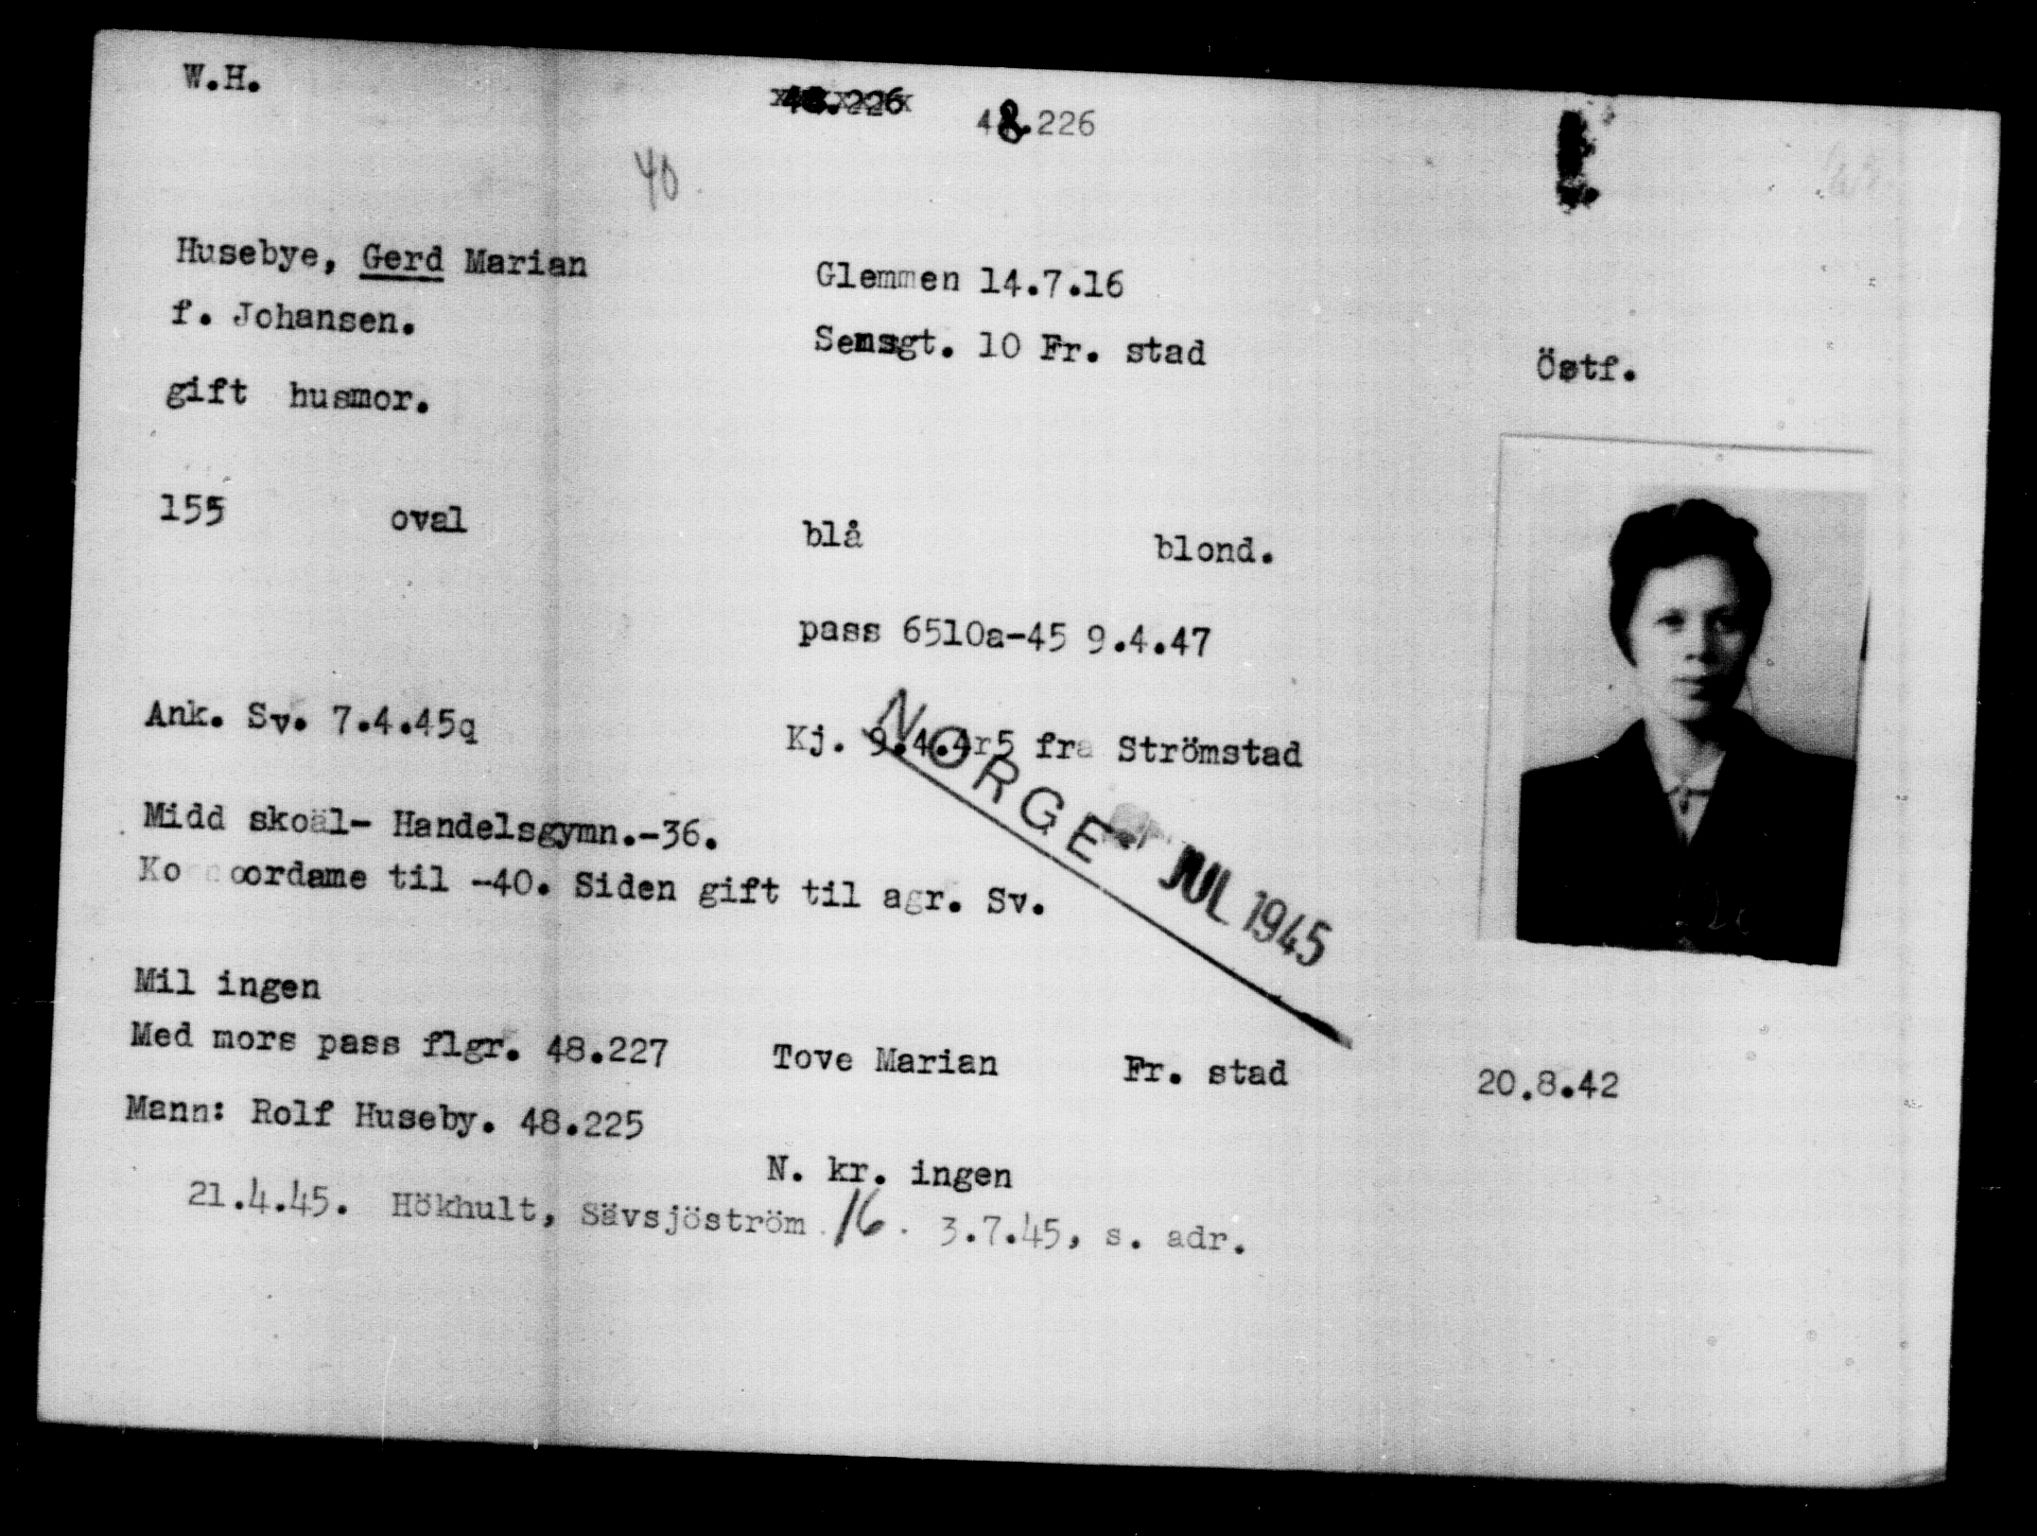 W.H.
48.226 48.226
40
Husebye, Gerd Marian Glemmen 14.7.16
f. Johansen. Sensgt. 10 Fr. stad Östf.
gift husmor.
155 oval blå blond.
pass 6510a-45 9.4.47
Ank. Sv. 7.4.45q Kj. 9.4.4r5 fra Strömstad
NORGE JUL 1945
Midd skoäl- Handelsgymn.-36.
til -40. Siden gift til agr. Sv.
Mil ingen
Med mors pass flgr. 48.227 Tove Marian Fr. stad 20.8.42
Mann: Rolf Huseby. 48.225
N. kr. ingen
21.4.45. Hökhult, Sävsjöström 16. 3.7.45, s. adr.